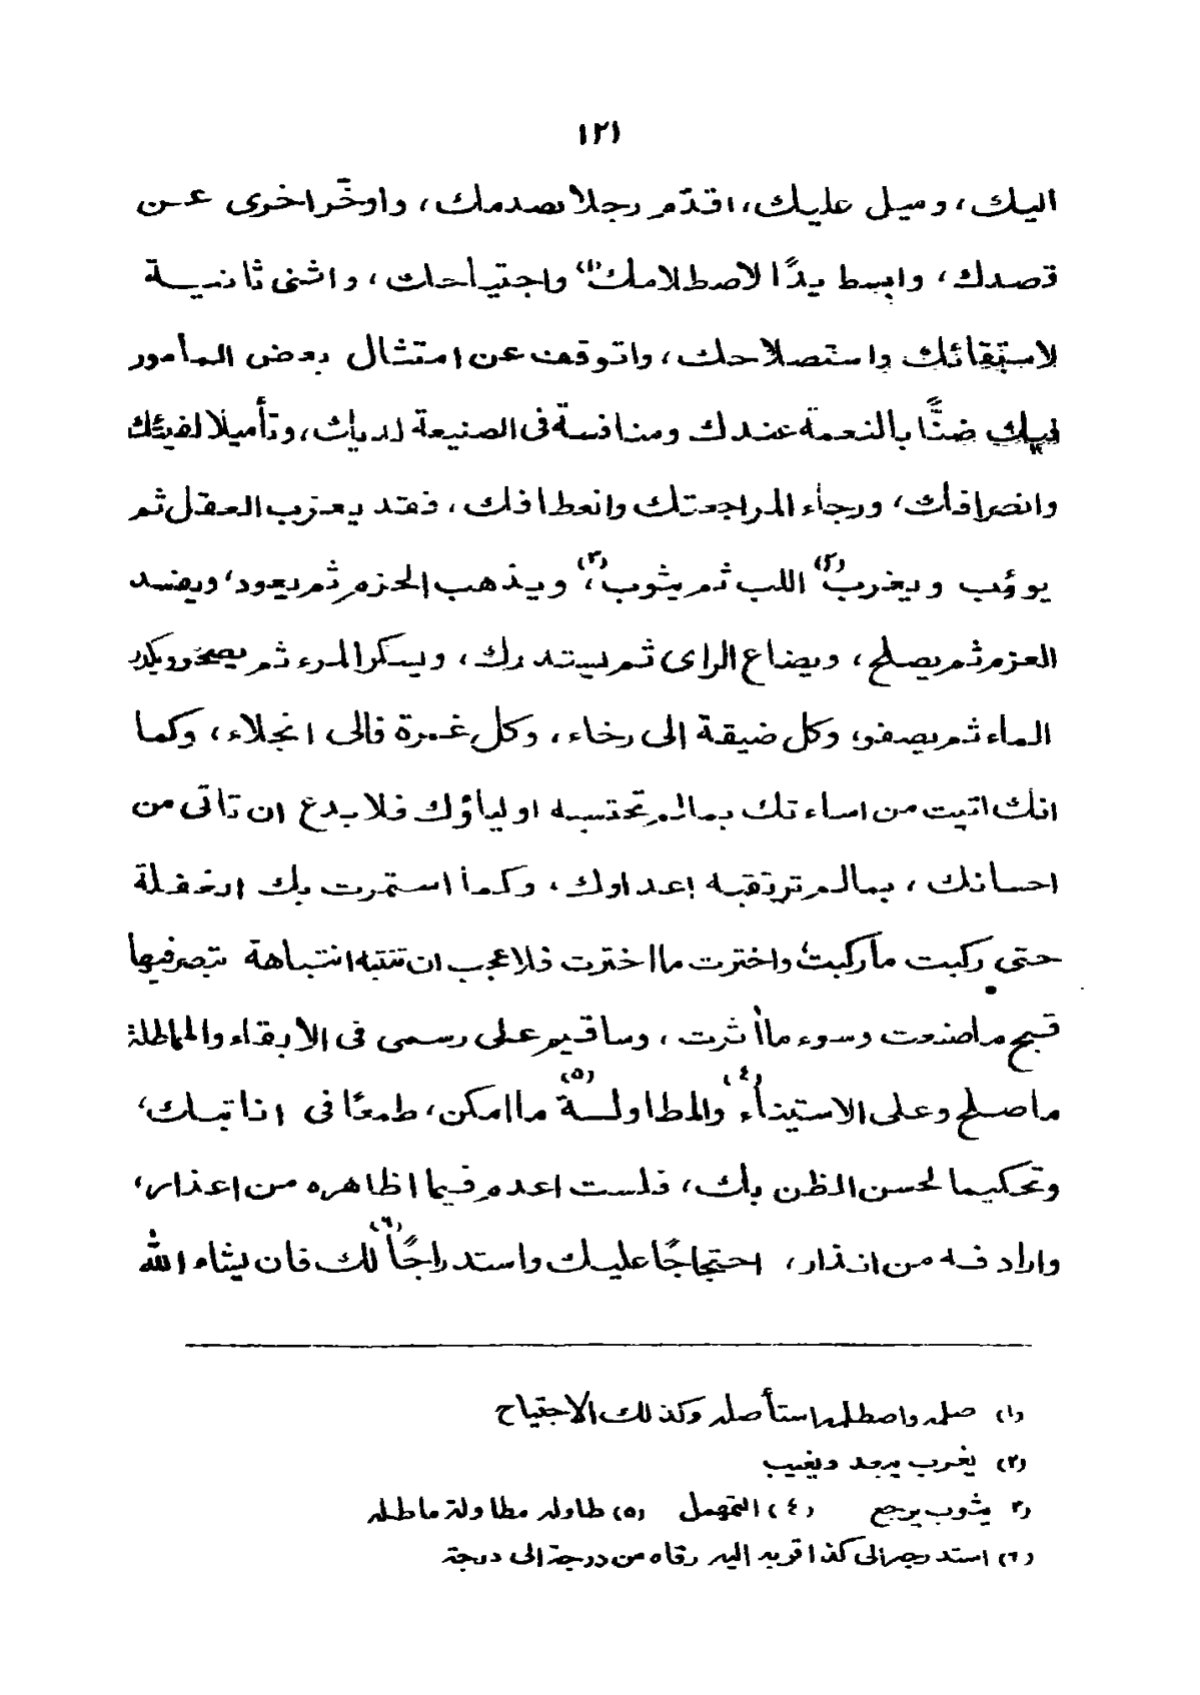 ١٢١
اليك، وميل عليك، اقدّم رجلا بصدمك، واوخّر اخرى عن
قصدك، وابسط يدًا لاصطلامك(١) واجتياحك، واثنى ثانية
لاستبقائك واستصلاحك، واتوقف عن امتثال بعض المأمور
فيك ضنًّا بالنعمة عندك ومنافسة فى الصنيعة لديك، وتأميلا لفيئتك
وانصرافك، ورجاء المراجعتك وانعطافك، فقد يعزب العقل ثم
يوؤب ويغرب(٢) اللب ثم يثوب(٣)، ويذهب الحزم ثم يعود، ويفسد
العزم ثم يصلح، ويضاع الراى ثم يستدرك، ويسكر المرء ثم يصحو ويكدر
الماء ثم يصفو، وكل ضيقة الى رخاء، وكل غمرة فالى انجلاء، وكما
انك اتيت من اساءتك بمالم تحتسبه اولياؤك فلا بدع ان تاتى من
احسانك، بمالم ترتقبه اعداوك، وكما استمرت بك الغفلة
حتى ركبت ما ركبت، واخترت ما اخترت فلا عجب ان تنتبه انتباهة تبصر فيها
قبح ما صنعت وسوء ما أثرت، وساقيم على رسمى فى الابقاء والمماطلة
ما صلح وعلى الاستيناء(٤) والمطاولة(٥) ما امكن، طمعًا فى انابتك،
وتحكيما لحسن الظن بك، فلست اعدم فيما اظاهره من اعذار،
وارادفه من انذار، احتجاجًا عليك واستدراجًا(٦) لك فان يشاء الله
(١) صلمه واصطلمه استأصله وكذلك الاجتياح
(٢) يغرب يبعد ويغيب
(٣ يثوب يرجع (٤) التمهل (٥) طاوله مطاولة ماطله
(٦) استدرجه الى كذا قربه اليه رقاه من درجة الى درجة